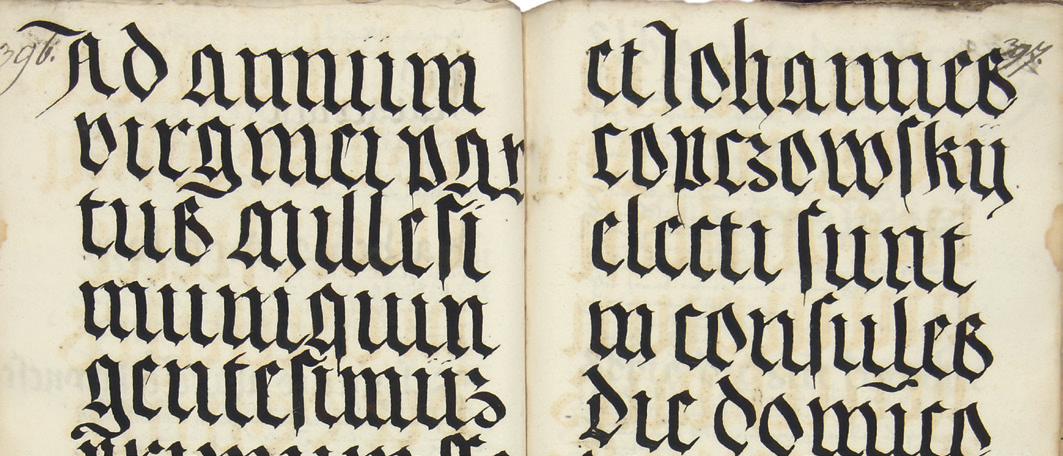 396.
Ad annum
virginei par
tus Millesi
mumquin
gentesimuz
primum
397.
et Johannes
Copczowskij
electi sunt
in consules
Die domico